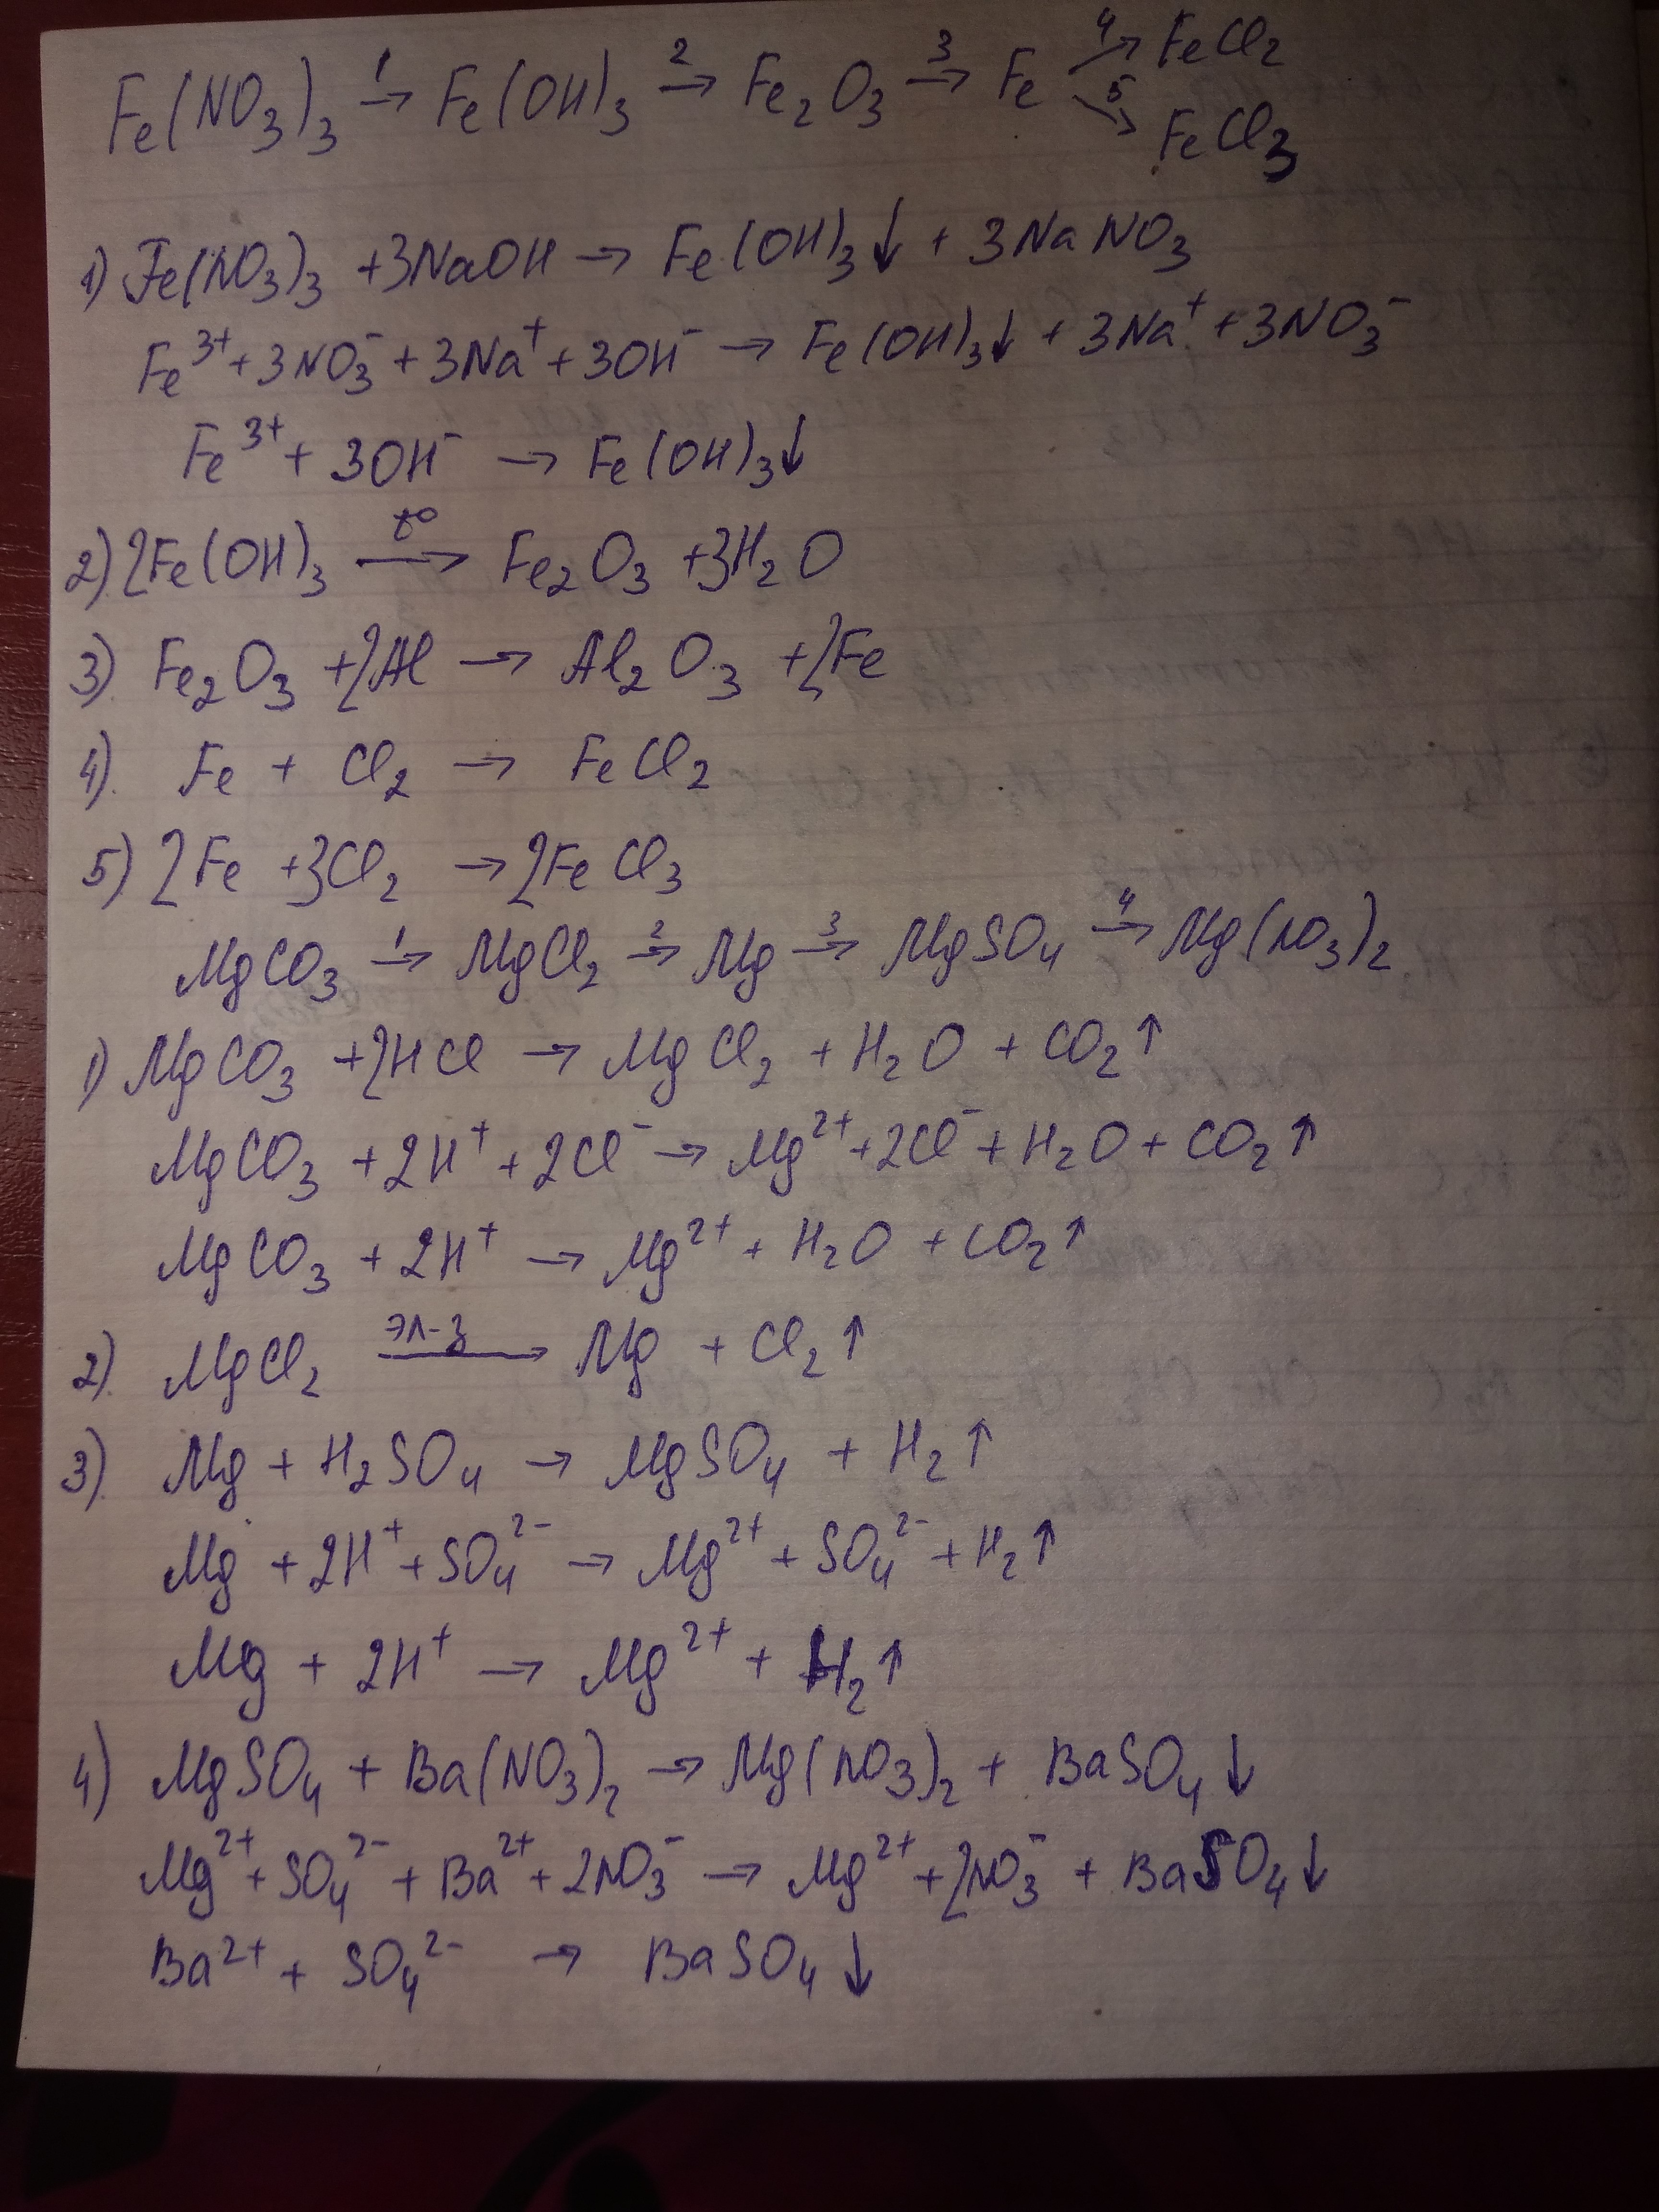 Fe(NO₃)₃ →¹ Fe(OH)₃ →² Fe₂O₃ →³ Fe →⁴ FeCl₂
→⁵ FeCl₃
1) Fe(NO₃)₃ +3NaOH → Fe(OH)₃↓ + 3NaNO₃
Fe³⁺ + 3NO₃⁻ + 3Na⁺ + 3OH⁻ → Fe(OH)₃↓ + 3Na⁺ + 3NO₃⁻
Fe³⁺ + 3OH⁻ → Fe(OH)₃↓
2) 2Fe(OH)₃ →t° Fe₂O₃ +3H₂O
3) Fe₂O₃ +2Al → Al₂O₃ +2Fe
4) Fe + Cl₂ → FeCl₂
5) 2Fe +3Cl₂ → 2FeCl₃
MgCO₃ →¹ MgCl₂ →² Mg →³ MgSO₄ →⁴ Mg(NO₃)₂
1) MgCO₃ +2HCl → MgCl₂ + H₂O + CO₂↑
MgCO₃ + 2H⁺ + 2Cl⁻ → Mg²⁺ + 2Cl⁻ + H₂O + CO₂↑
MgCO₃ + 2H⁺ → Mg²⁺ + H₂O + CO₂↑
2) MgCl₂ →эл-з Mg + Cl₂↑
3) Mg + H₂SO₄ → MgSO₄ + H₂↑
Mg + 2H⁺ + SO₄²⁻ → Mg²⁺ + SO₄²⁻ + H₂↑
Mg + 2H⁺ → Mg²⁺ + H₂↑
4) MgSO₄ + Ba(NO₃)₂ → Mg(NO₃)₂ + BaSO₄↓
Mg²⁺ + SO₄²⁻ + Ba²⁺ + 2NO₃⁻ → Mg²⁺ + 2NO₃⁻ + BaSO₄↓
Ba²⁺ + SO₄²⁻ → BaSO₄↓